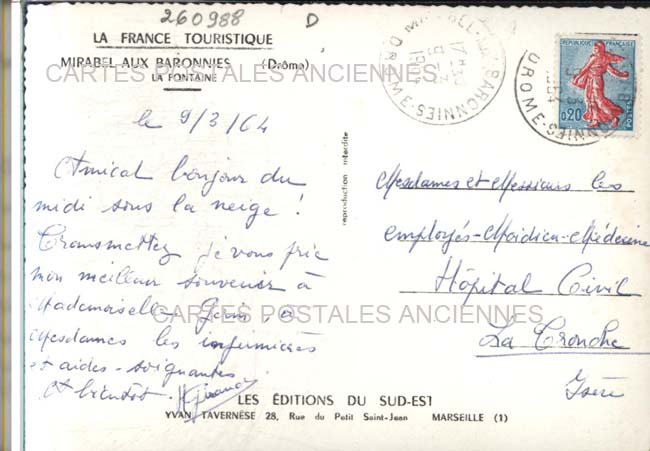 260988 D
LA FRANCE TOURISTIQUE
MIRABEL-AUX BARONNIES (Drôme)
LA FONTAINE
CARTES POSTALES ANCIENNES
le 9/3/64
Amical bonjour du
midi sous la neige !
Transmettez je vous prie
mon meilleur souvenir à
Mademoiselle à
Mesdames les infirmières
et aides-soignantes.
A bientôt.
reproduction interdite
MIRABEL-AUX-BARONNIES
DROME
REPUBLIQUE FRANÇAISE
0,20
POSTES
Mesdames et Messieurs les
employés - Médecine
Hôpital Civil
La Tronche
Isère
CARTES POSTALES ANCIENNES
LES ÉDITIONS DU SUD-EST
YVAN TAVERNÈSE 28, Rue du Petit Saint-Jean MARSEILLE (1)